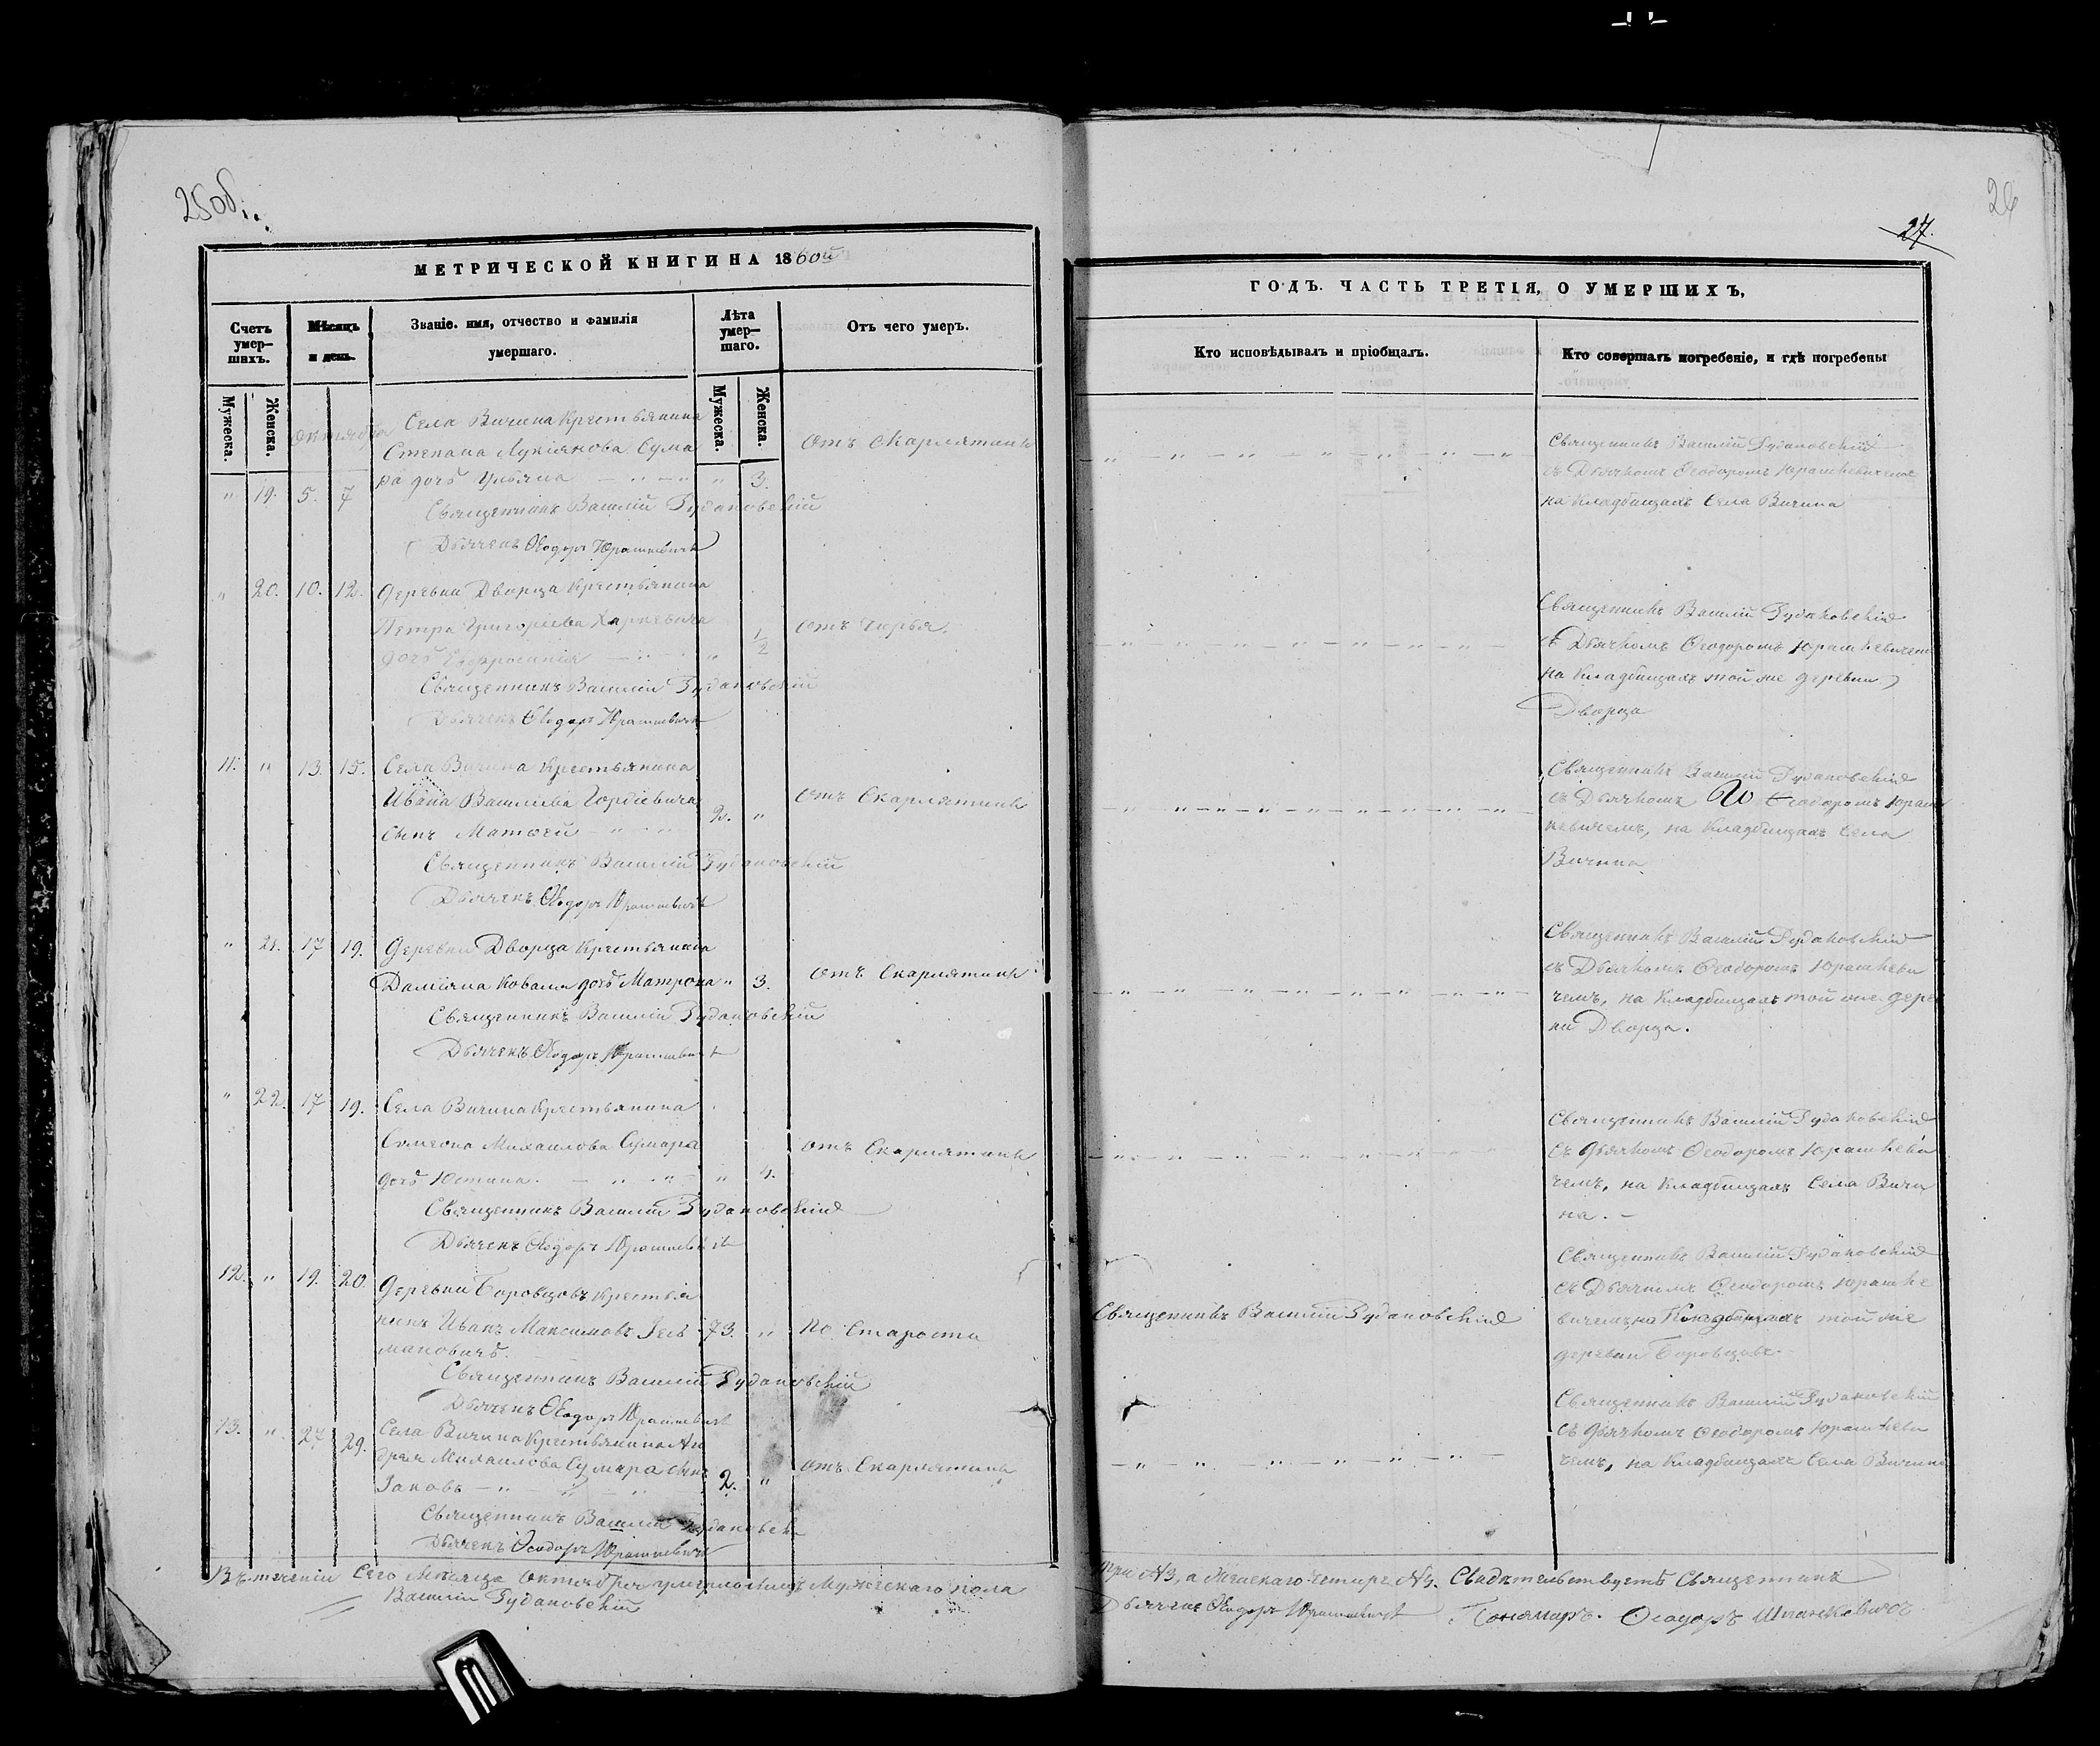 25об.
МЕТРИЧЕСКОЙ КНИГИ НА 1860й
Счетъ умер-шихъ.
Мѣсяцъ и день.
Званіе. имя, отчество и фамилія умершаго.
Лѣта умер-шаго.
Отъ чего умеръ.
Мужеска.
Женска.
Мужеска.
Женска.
Октября
Села Вичина Крестьянина
Степана Лукіянова Сума
ра дочь Ульяна — " — " 3.
отъ Скарлятины
" 19. 5. 7
Священникъ Василій Рудаковскій
Дьячекъ Ѳеодоръ Юрашкевичъ
" 20. 10. 12. Деревни Дворца Крестьянина
Петра Григоріева Харкевича
дочь Евфросинія — " — " 1/2
отъ
Священникъ Василій Рудаковскій
Дьячекъ Ѳеодоръ Юрашкевичъ
11. " 13. 15. Села Вичина Крестьянина
Ивана Василіева Гордіевича
сынъ Матѳей — " — 2. "
отъ Скарлятины
Священникъ Василій Рудаковскій
Дьячекъ Ѳеодоръ Юрашкевичъ
" 21. 17 19. Деревни Дворца Крестьянина
Даміяна Коваля дочь Матрона " 3.
отъ Скарлятины
Священникъ Василій Рудаковскій
Дьячекъ Ѳеодоръ Юрашкевичъ
" 22. 17 19. Села Вичина Крестьянина
Симеона Михаилова Сумара
дочь Юстина. — " — " — " 4.
отъ Скарлятины
Священникъ Василій Рудаковскій
Дьячекъ Ѳеодоръ Юрашкевичъ
12. " 19. 20. Деревни Боровцовъ Крестья
нинъ Иванъ Максимовъ
мановичъ. 73. " По Старости
Священникъ Василій Рудаковскій
Дьячекъ Ѳеодоръ Юрашкевичъ
13. " 27 29. Села Вичина Крестьянина Ан
дрея Михаилова Сумара сынъ
Іаковъ — " — " — " 2. "
отъ Скарлятины
Священникъ Василій Рудаковскій
Дьячекъ Ѳеодоръ Юрашкевичъ
Въ теченіи Сего Мѣсяца Октября умерло Мужескаго пола
Василій Рудаковскій
26
27.
ГОДЪ. ЧАСТЬ ТРЕТІЯ, О УМЕРШИХЪ,
Кто исповѣдывалъ и пріобщалъ.
Кто совершалъ погребеніе, и гдѣ погребены
Священникъ Василій Рудаковскій
съ Дьячкомъ Ѳеодоромъ Юрашкевичемъ
на Кладбищахъ Села Вичина
Священникъ Василій Рудаковскій
съ Дьячкомъ Ѳеодоромъ Юрашкевичемъ
на Кладбищахъ той же деревни
Дворца
Священникъ Василій Рудаковскій
съ Дьячкомъ Ѳеодоромъ Юраш
кевичемъ, на Кладбищахъ Села
Вичина
Священникъ Василій Рудаковскій
съ Дьячкомъ Ѳеодоромъ Юрашкеви
чемъ, на Кладбищахъ той же дерев
ни Дворца.
Священникъ Василій Рудаковскій
съ Дьячкомъ Ѳеодоромъ Юрашкеви
чемъ, на Кладбищахъ Села Вичи
на. —
Священникъ Василій Рудаковскій
Священникъ Василій Рудаковскій
съ Дьячкомъ Ѳеодоромъ Юрашке
вичемъ, на Кладбищахъ той же
деревни Боровцовъ.
Священникъ Василій Рудаковскій
съ Дьячкомъ Ѳеодоромъ Юрашкеви
чемъ, на Кладбищахъ Села Вичина
три №3, а Женскаго четыре №4. Свидѣтельствуетъ Священникъ
Дьячекъ Ѳеодоръ Юрашкевичъ Пономарь. Ѳеодоръ